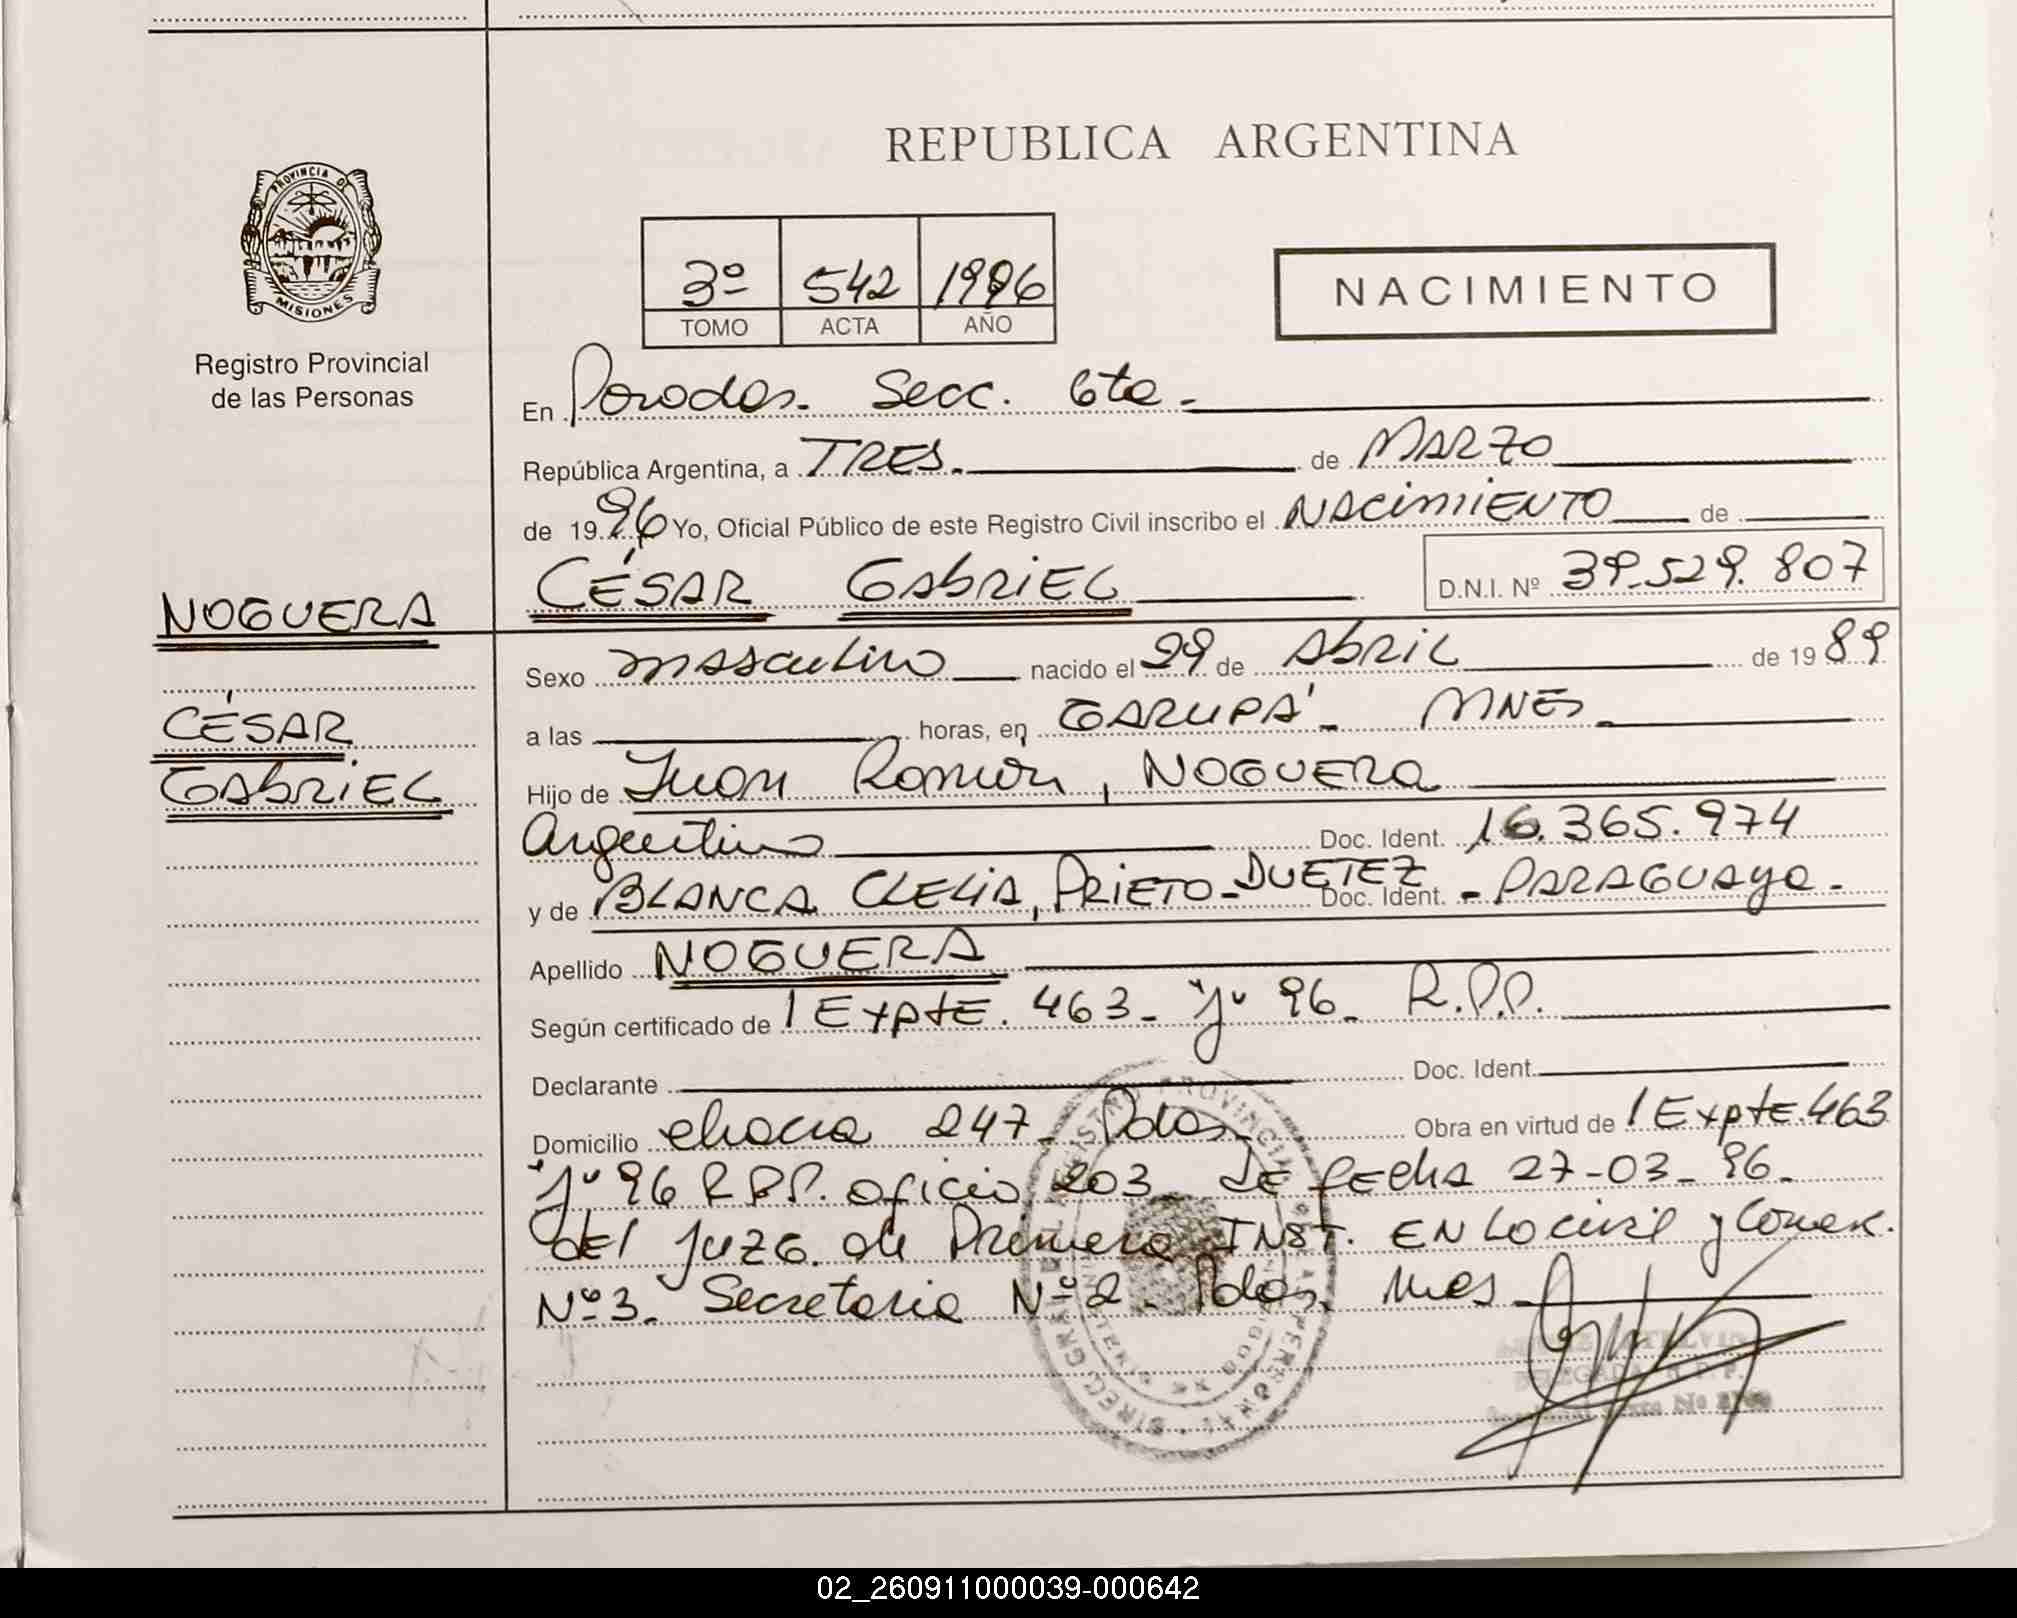 REPUBLICA ARGENTINA
PROVINCIA DE
MISIONES
Registro Provincial
de las Personas
3º 542 1996
TOMO ACTA AÑO
NACIMIENTO
En Posadas. Secc. 6ta.
República Argentina, a TRES. de MARZO
de 1996 Yo, Oficial Público de este Registro Civil inscribo el NACIMIENTO de
CÉSAR GABRIEL D.N.I. Nº 39.529.807
NOGUERA
CÉSAR
GABRIEL
Sexo masculino nacido el 29 de Abril de 1989
a las horas, en GARUPÁ - MNES.
Hijo de Juan Ramón, NOGUERA
Argentino Doc. Ident. 16.365.974
y de BLANCA CLELIA, PRIETO-DUETEZ Doc. Ident. - PARAGUAYA.
Apellido NOGUERA
Según certificado de Expte. 463 - "J" 96 - R.P.P.
Declarante Doc. Ident.
Domicilio chacra 247 - Pdas. Obra en virtud de Expte. 463
"J" 96 R.P.P. oficio 203 DE fecha 27-03-96.
del Juzg. de Primera INST. EN Lo civil y Comer.
Nº 3. Secretaria Nº 2. Pdas. Mnes
02_260911000039-000642